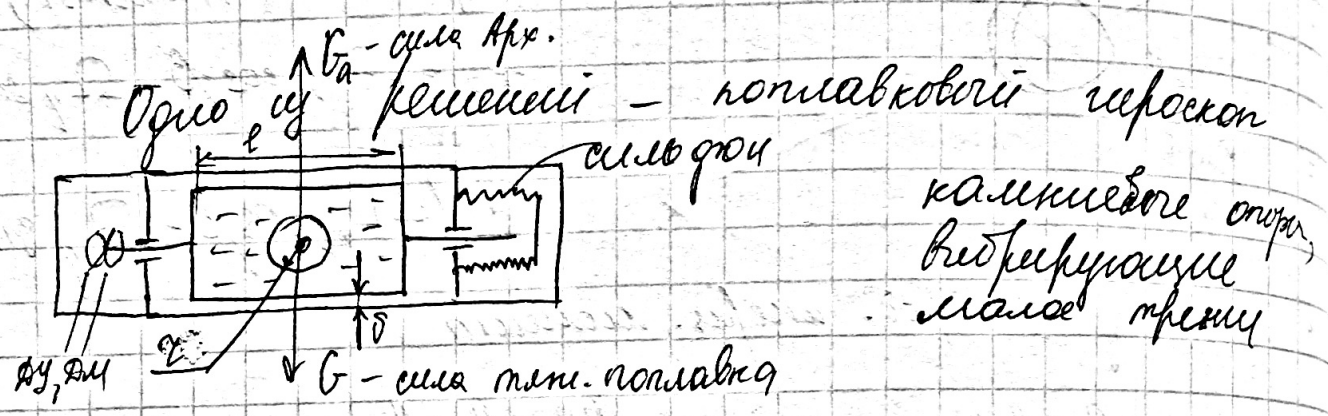 Gₐ - сила Арх.
Одно из решений - поплавковый гироскоп
l
сильфон
камниевые опоры,
вибрирующие
малое трение
δ
ДУ, ДМ
G - сила тяж. поплавка